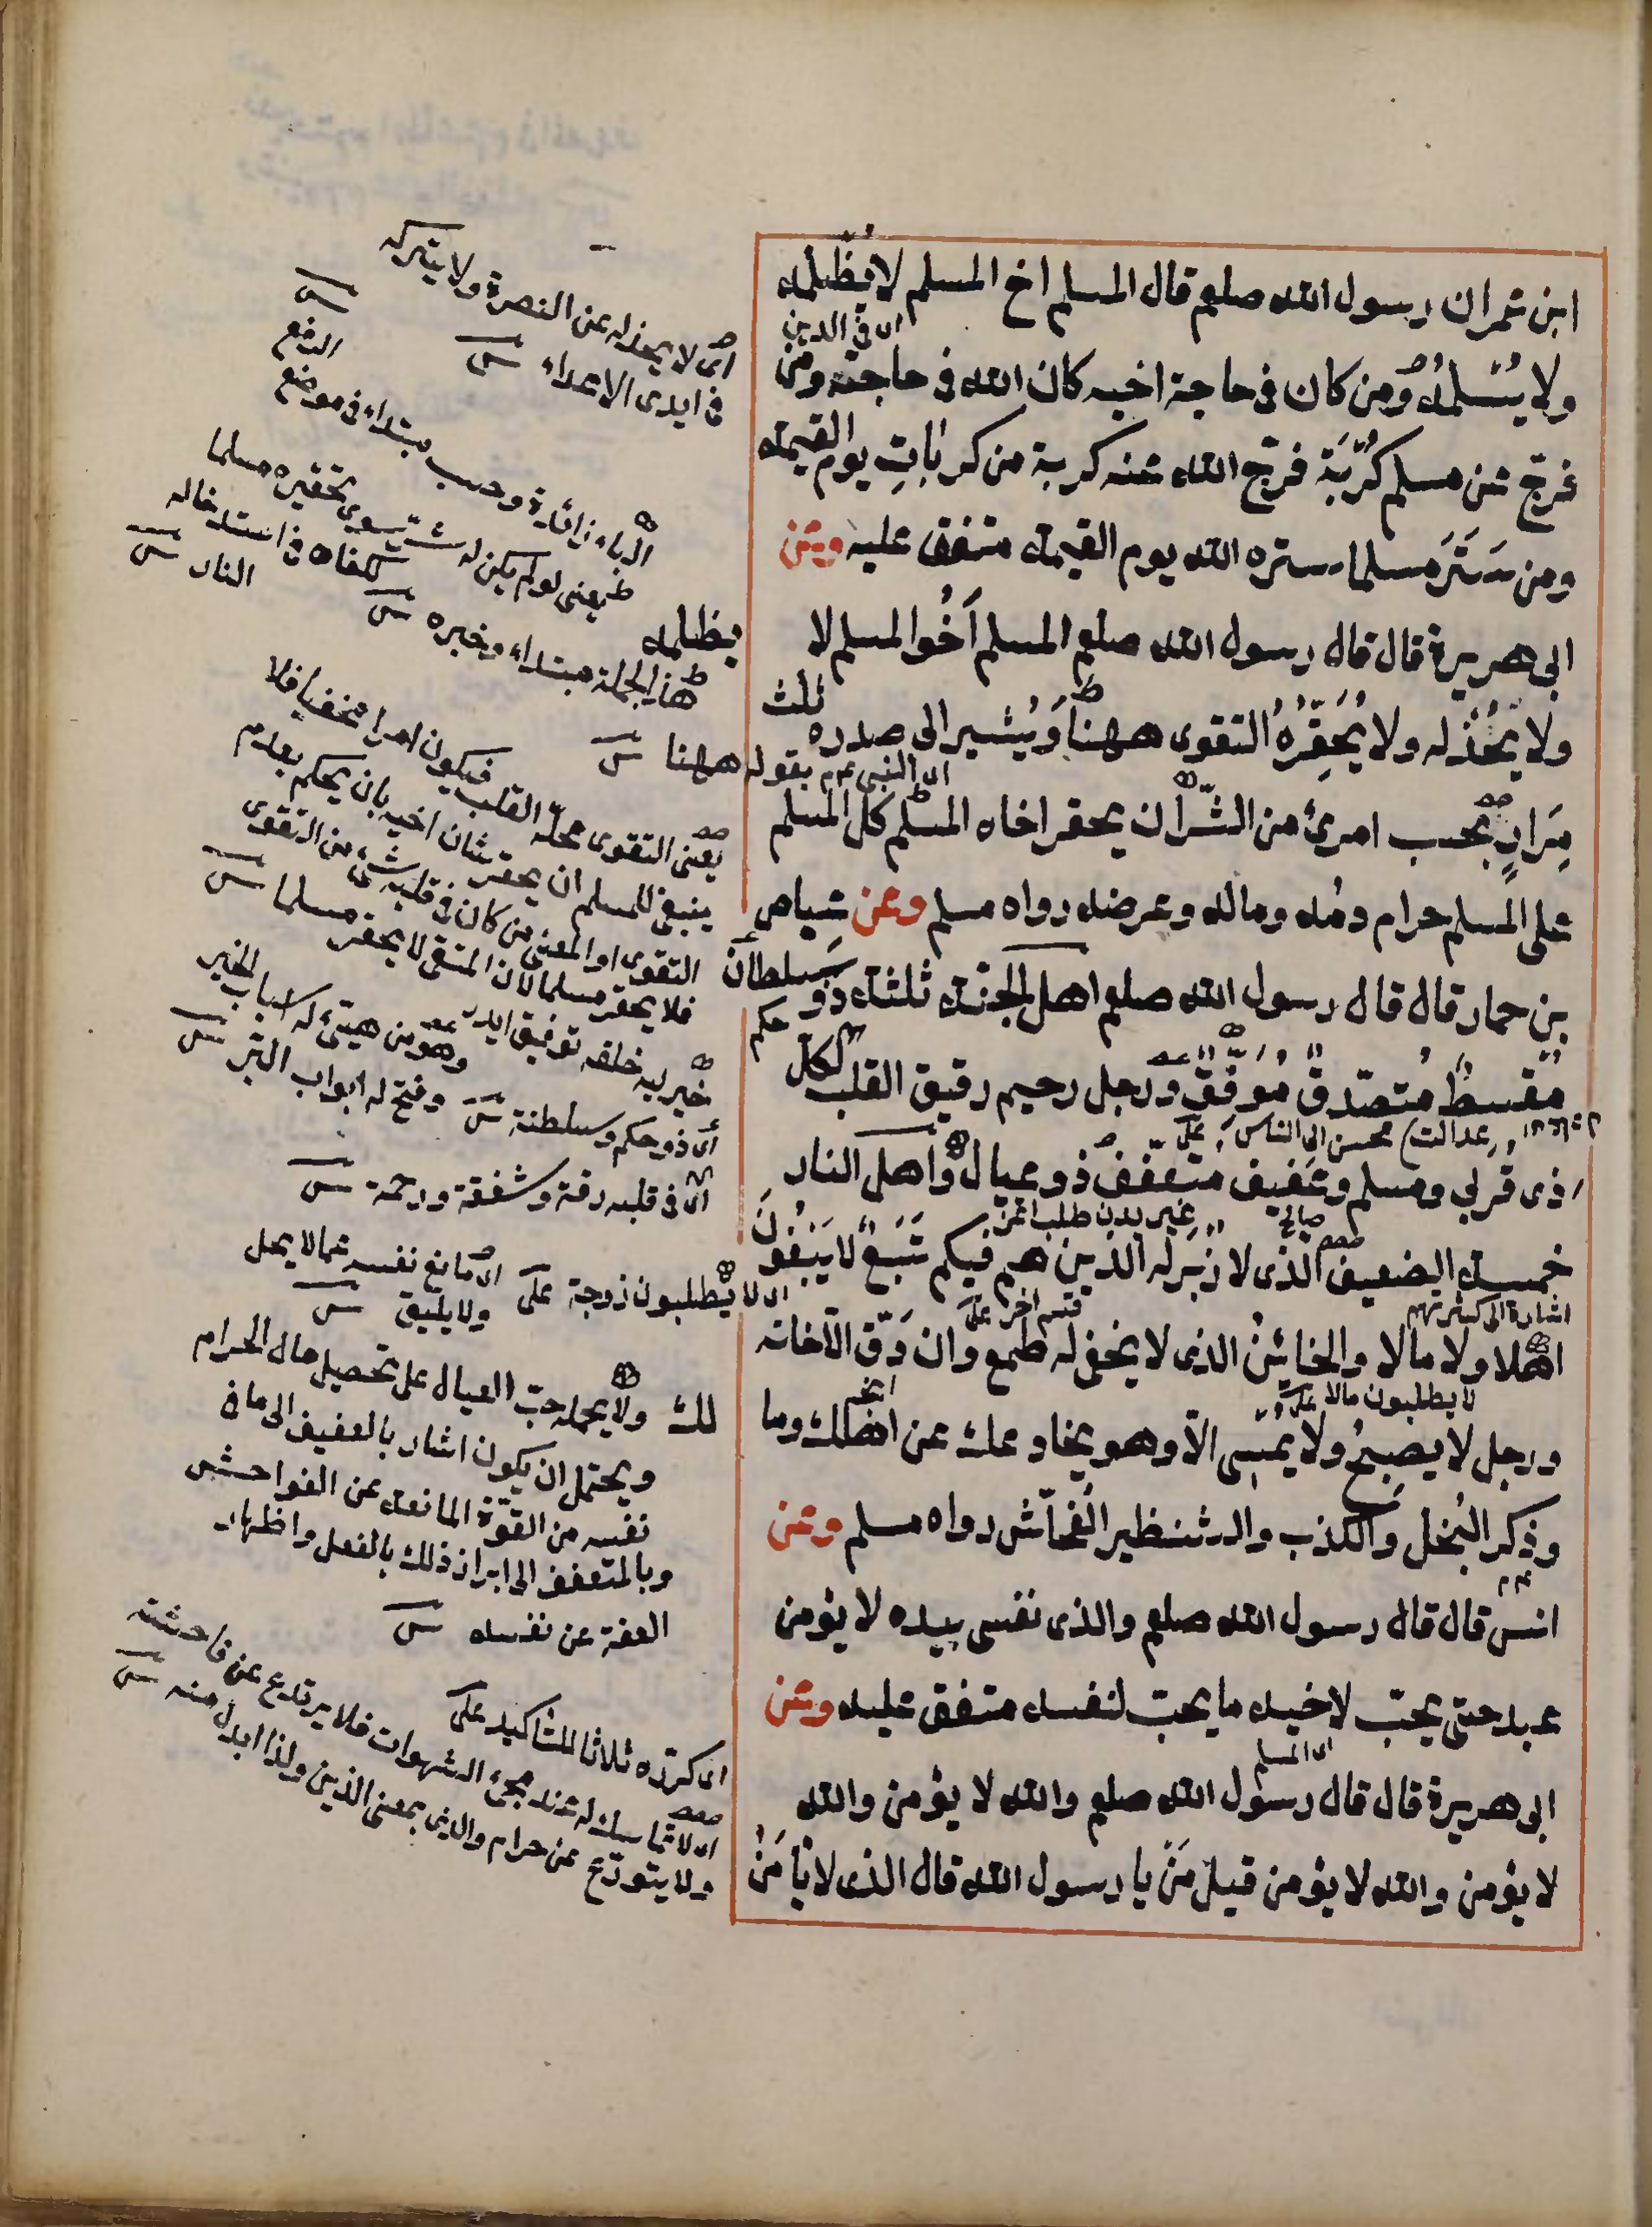 ابن عمر ان رسول الله صلعم قال المسلم اخ المسلم لا يظلمه
اى فى الدين
ولا يسلمه ومن كان فى حاجة اخيه كان الله فى حاجته ومن
فرج عن مسلم كربة فرج الله عنه كربة من كربات يوم القيمة
ومن ستر مسلما ستره الله يوم القيمة متفق عليه وعن
ابى هريرة قال قال رسول الله صلعم المسلم اخو المسلم لا
يظلمه
ولا يخذله ولا يحقره التقوى ههنا ويشير الى صدره ثلث
اى النبى عم بقوله ههنا
مرار بحسب امرئ من الشر ان يحقر اخاه المسلم كل المسلم
على المسلم حرام دمه وماله وعرضه رواه مسلم وعن عياض
بن حمار قال قال رسول الله صلعم اهل الجنة ثلثة ذو سلطان
حكم
مقسط متصدق موفق ورجل رحيم رقيق القلب لكل
عدالت محسن الى الناس على
ذى قربى ومسلم وعفيف متعفف ذو عيال واهل النار
خمسة الضعيف الذى لا زبر له الذين هم فيكم تبع لا يبغون
اشارة الى كثرتهم قسم اخر على
اهلا ولا مالا والخائن الذى لا يخفى له طمع وان دق الا خانه
لا يطلبون مالا على
ورجل لا يصبح ولا يمسى الا وهو يخادعك عن اهلك وما
لك
وذكر البخل والكذب والشنظير الفحاش رواه مسلم وعن
انس قال قال رسول الله صلعم والذى نفسى بيده لا يؤمن
عبد حتى يحب لاخيه ما يحب لنفسه متفق عليه وعن
اى المسلم
ابى هريرة قال قال رسول الله صلعم والله لا يؤمن والله
لا يؤمن والله لا يؤمن قيل من يا رسول الله قال الذى لا يأمن
اى لا يخذله عن النصرة ولا يتركه
فى ايدى الاعداء
الباء زائدة وحسب مبتداء فى موضع
الدفع
يعنى لو لم يكن له شر سوى تحقيره مسلما
لكفاه فى استدخاله
النار
هذا الجملة مبتداء وخبره
يعنى التقوى محله القلب فيكون امرا مخفيا فلا
ينبغى للمسلم ان يحقر شان اخيه بان يحكم بعدم
التقوى او المعنى من كان فى قلبه شئ من التقوى
فلا يحقر مسلما لان المتقى لا يحقر مسلما
وهو من هيئ له اسباب الخير
وفتح له ابواب البر
اى ذو حكم وسلطنة
اى فى قلبه رقة وشفقة ورحمة
اى مانع نفسه عما لا يحل
ولا يليق
اى لا يطلبون زوجة على
ولا يحمله حب العيال على تحصيل مال الحرام
ويحتمل ان يكون اشار بالعفيف الى ما فى
نفسه من القوة المانعة عن الفواحش
وبالمتعفف الى ابراز ذلك بالفعل واظهار
العفة عن نفسه
اى كرره ثلاثا للتأكيد على
اى لا تماسك له عند مجئ الشهوات فلا يرتدع عن فاحشة
ولا يتورع عن حرام والذى بمعنى الذين ولذا ابدل منه